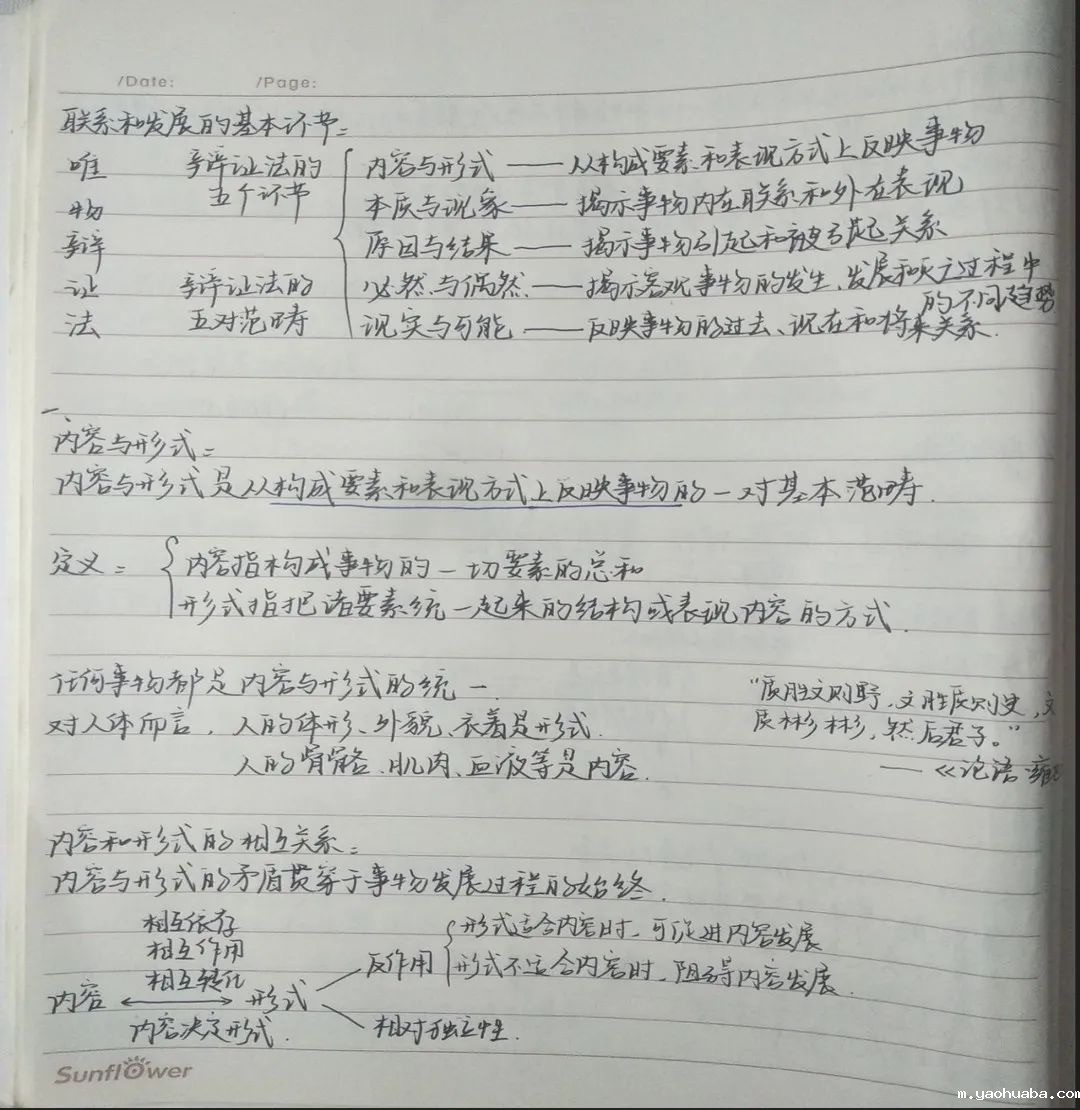 /Date: /Page:
联系和发展的基本环节:
唯 辩证法的 内容与形式 —— 从构成要素和表现方式上反映事物
五个环节
物 本质与现象 —— 揭示事物内在联系和外在表现
辩 原因与结果 —— 揭示事物引起和被引起关系
证 辩证法的 必然与偶然 —— 揭示客观事物的发生、发展和灭亡过程中
的不同趋势
法 五对范畴 现实与可能 —— 反映事物的过去、现在和将来关系.
一、
内容与形式:
内容与形式是从构成要素和表现方式上反映事物的一对基本范畴.
定义: 内容指构成事物的一切要素的总和
形式指把诸要素统一起来的结构或表现内容的方式.
任何事物都是内容与形式的统一.
对人体而言, 人的体形、外貌、衣着是形式.
人的骨骼、肌肉、血液等是内容.
"质胜文则野,文胜质则史,文
质彬彬,然后君子。"
——《论语·雍
内容和形式的相互关系:
内容与形式的矛盾贯穿于事物发展过程的始终.
相互依存
相互作用
相互转化
内容 ⟷ 形式
内容决定形式.
反作用 形式适合内容时,可促进内容发展
形式不适合内容时,阻碍内容发展.
相对独立性.
Sunflower
m.yaohuaba.com